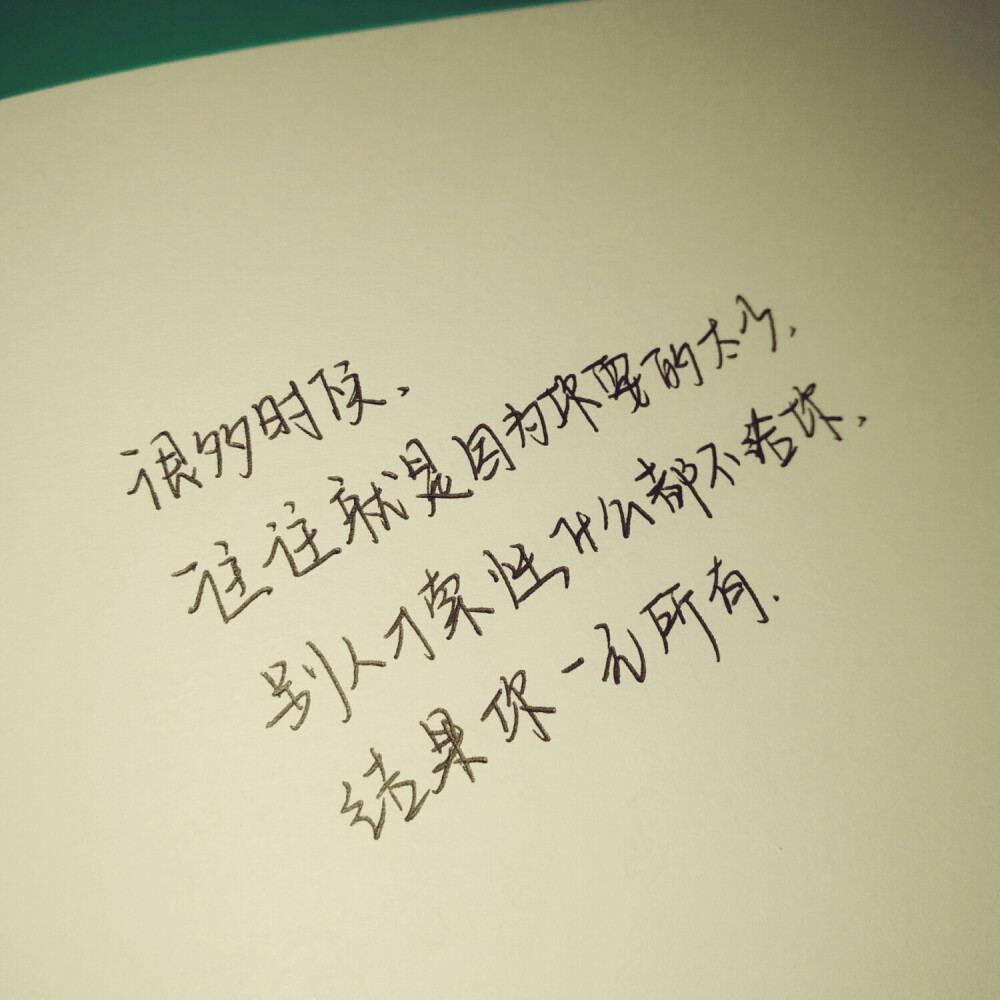 很多时候，
往往就是因为你要的太少，
别人才索性什么都不给你，
结果你一无所有.